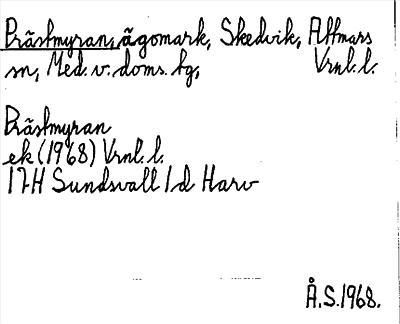 Prästmyran, ägomark, Skedvik, Attmars
sn, Med. v. doms. tg, Vrnl. l.
Prästmyran
ek (1968) Vrnl. l.
17H Sundsvall 1d Harv
Å.S. 1968.